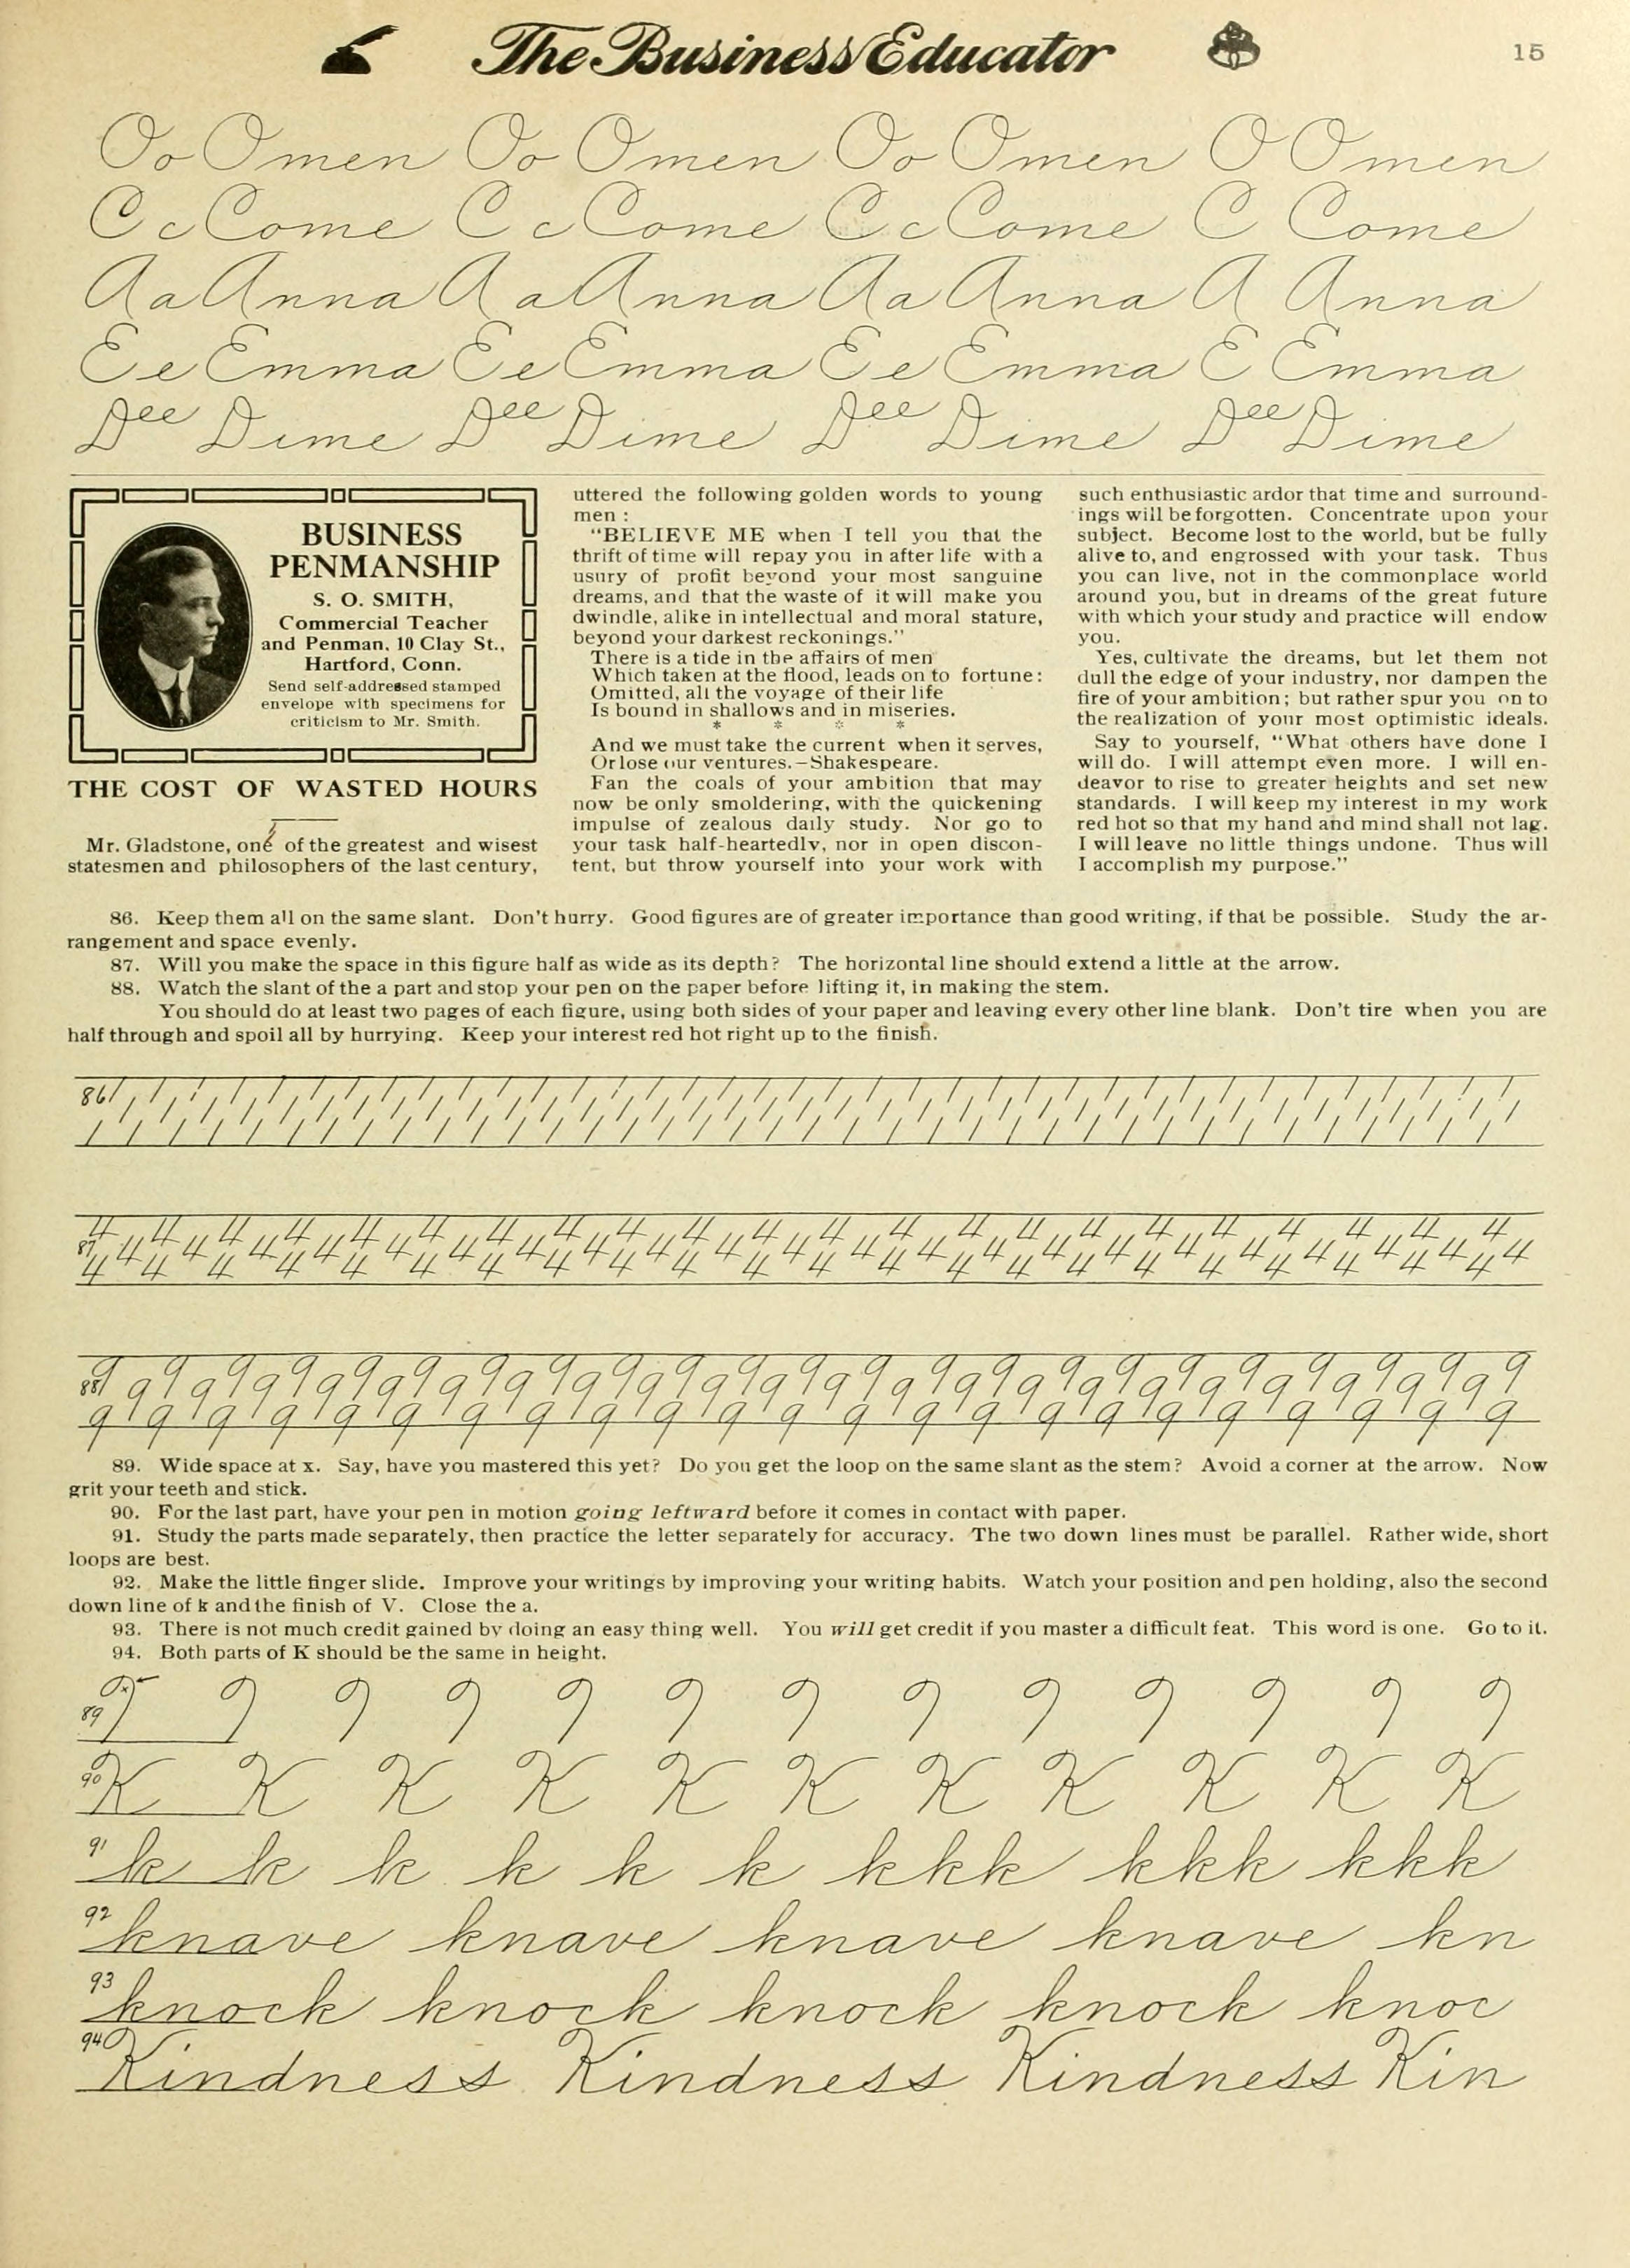 The Business Educator
15
Oo Omen Oo Omen Oo Omen O Omen
Cc Come Cc Come Cc Come C Come
Aa Anna Aa Anna Aa Anna A Anna
Ee Emma Ee Emma Ee Emma E Emma
Dee Dime Dee Dime Dee Dime Dee Dime
BUSINESS
PENMANSHIP
S. O. SMITH,
Commercial Teacher
and Penman, 10 Clay St.,
Hartford, Conn.
Send self-addressed stamped
envelope with specimens for
criticism to Mr. Smith.
THE COST OF WASTED HOURS
Mr. Gladstone, one of the greatest and wisest
statesmen and philosophers of the last century,
uttered the following golden words to young
men :
"BELIEVE ME when I tell you that the
thrift of time will repay you in after life with a
usury of profit beyond your most sanguine
dreams, and that the waste of it will make you
dwindle, alike in intellectual and moral stature,
beyond your darkest reckonings."
There is a tide in the affairs of men
Which taken at the flood, leads on to fortune:
Omitted, all the voyage of their life
Is bound in shallows and in miseries.
* * * *
And we must take the current when it serves,
Or lose our ventures.—Shakespeare.
Fan the coals of your ambition that may
now be only smoldering, with the quickening
impulse of zealous daily study. Nor go to
your task half-heartedly, nor in open discon-
tent, but throw yourself into your work with
such enthusiastic ardor that time and surround-
ings will be forgotten. Concentrate upon your
subject. Become lost to the world, but be fully
alive to, and engrossed with your task. Thus
you can live, not in the commonplace world
around you, but in dreams of the great future
with which your study and practice will endow
you.
Yes, cultivate the dreams, but let them not
dull the edge of your industry, nor dampen the
fire of your ambition; but rather spur you on to
the realization of your most optimistic ideals.
Say to yourself, "What others have done I
will do. I will attempt even more. I will en-
deavor to rise to greater heights and set new
standards. I will keep my interest in my work
red hot so that my hand and mind shall not lag.
I will leave no little things undone. Thus will
I accomplish my purpose."
86. Keep them all on the same slant. Don't hurry. Good figures are of greater importance than good writing, if that be possible. Study the ar-
rangement and space evenly.
87. Will you make the space in this figure half as wide as its depth? The horizontal line should extend a little at the arrow.
88. Watch the slant of the a part and stop your pen on the paper before lifting it, in making the stem.
You should do at least two pages of each figure, using both sides of your paper and leaving every other line blank. Don't tire when you are
half through and spoil all by hurrying. Keep your interest red hot right up to the finish.
86
87
88
89. Wide space at x. Say, have you mastered this yet? Do you get the loop on the same slant as the stem? Avoid a corner at the arrow. Now
grit your teeth and stick.
90. For the last part, have your pen in motion going leftward before it comes in contact with paper.
91. Study the parts made separately, then practice the letter separately for accuracy. The two down lines must be parallel. Rather wide, short
loops are best.
92. Make the little finger slide. Improve your writings by improving your writing habits. Watch your position and pen holding, also the second
down line of k and the finish of V. Close the a.
93. There is not much credit gained by doing an easy thing well. You will get credit if you master a difficult feat. This word is one. Go to it.
94. Both parts of K should be the same in height.
89 x
90 K K K K K K K K K K K
91 k k k k k k k k k k k k k k k
92 knave knave knave knave kn
93 knock knock knock knock knoc
94 Kindness Kindness Kindness Kin